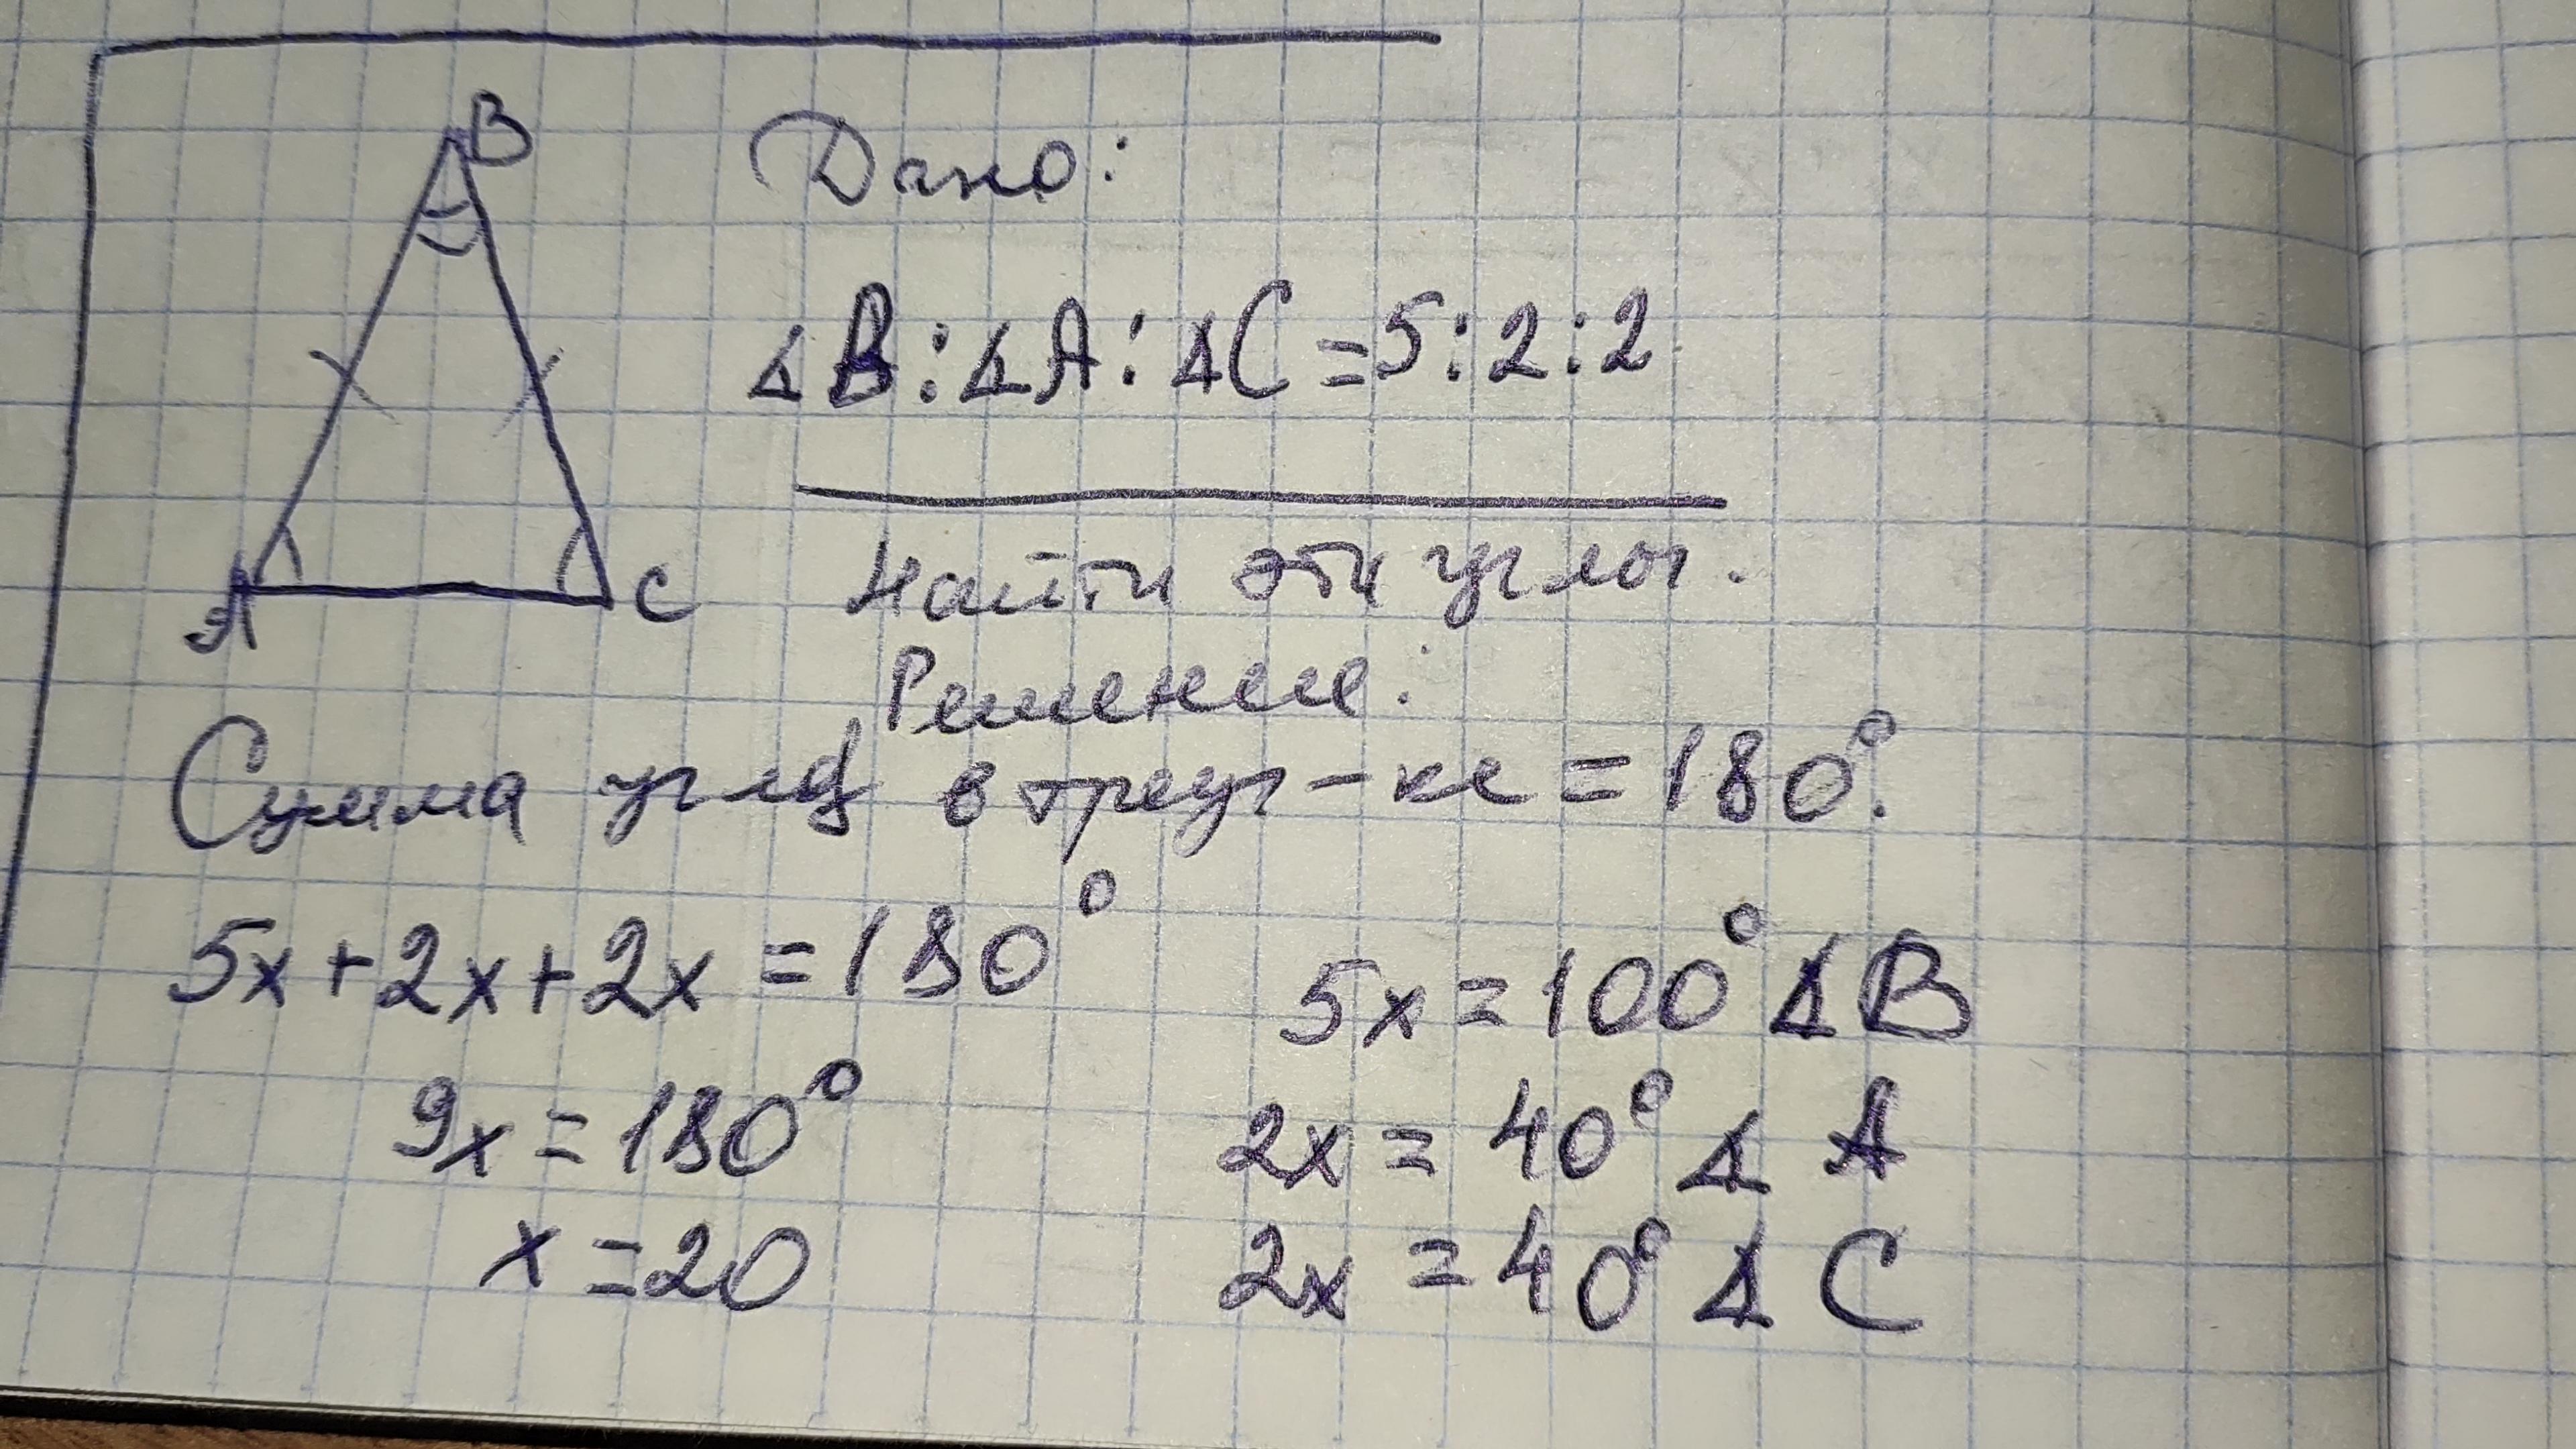 B
A
C
Дано:
∠B:∠A:∠C=5:2:2
Найти эти углы.
Решение:
Сумма углов в треуг-ке = 180°.
5x+2x+2x=180°
9x=180°
x=20
5x=100° ∠B
2x=40° ∠A
2x=40° ∠C